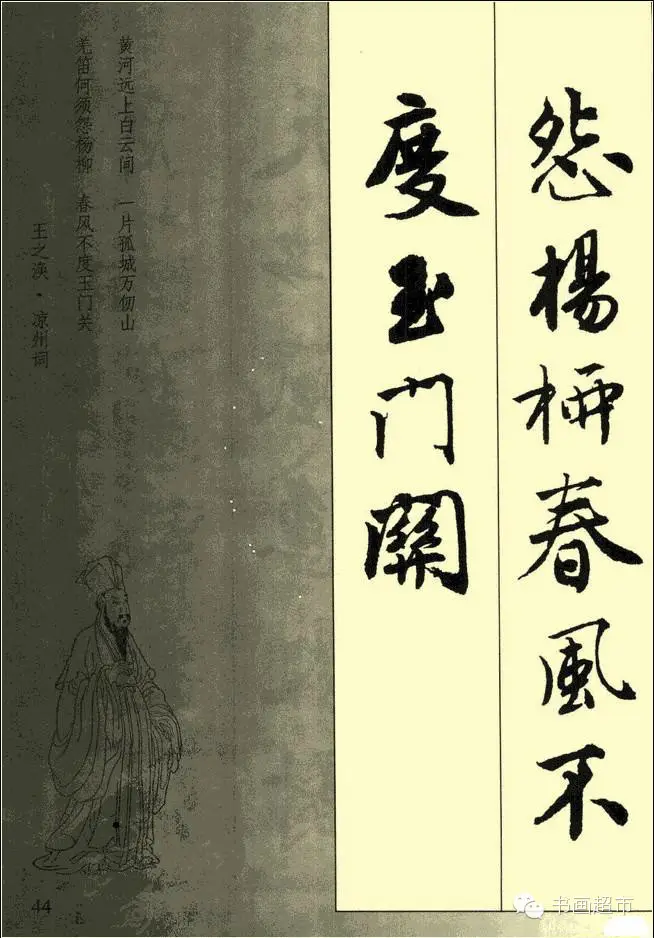 怨楊柳春風不
度玉門關
黄河远上白云间　一片孤城万仞山
羌笛何须怨杨柳　春风不度玉门关
王之涣·凉州词
44
书画超市